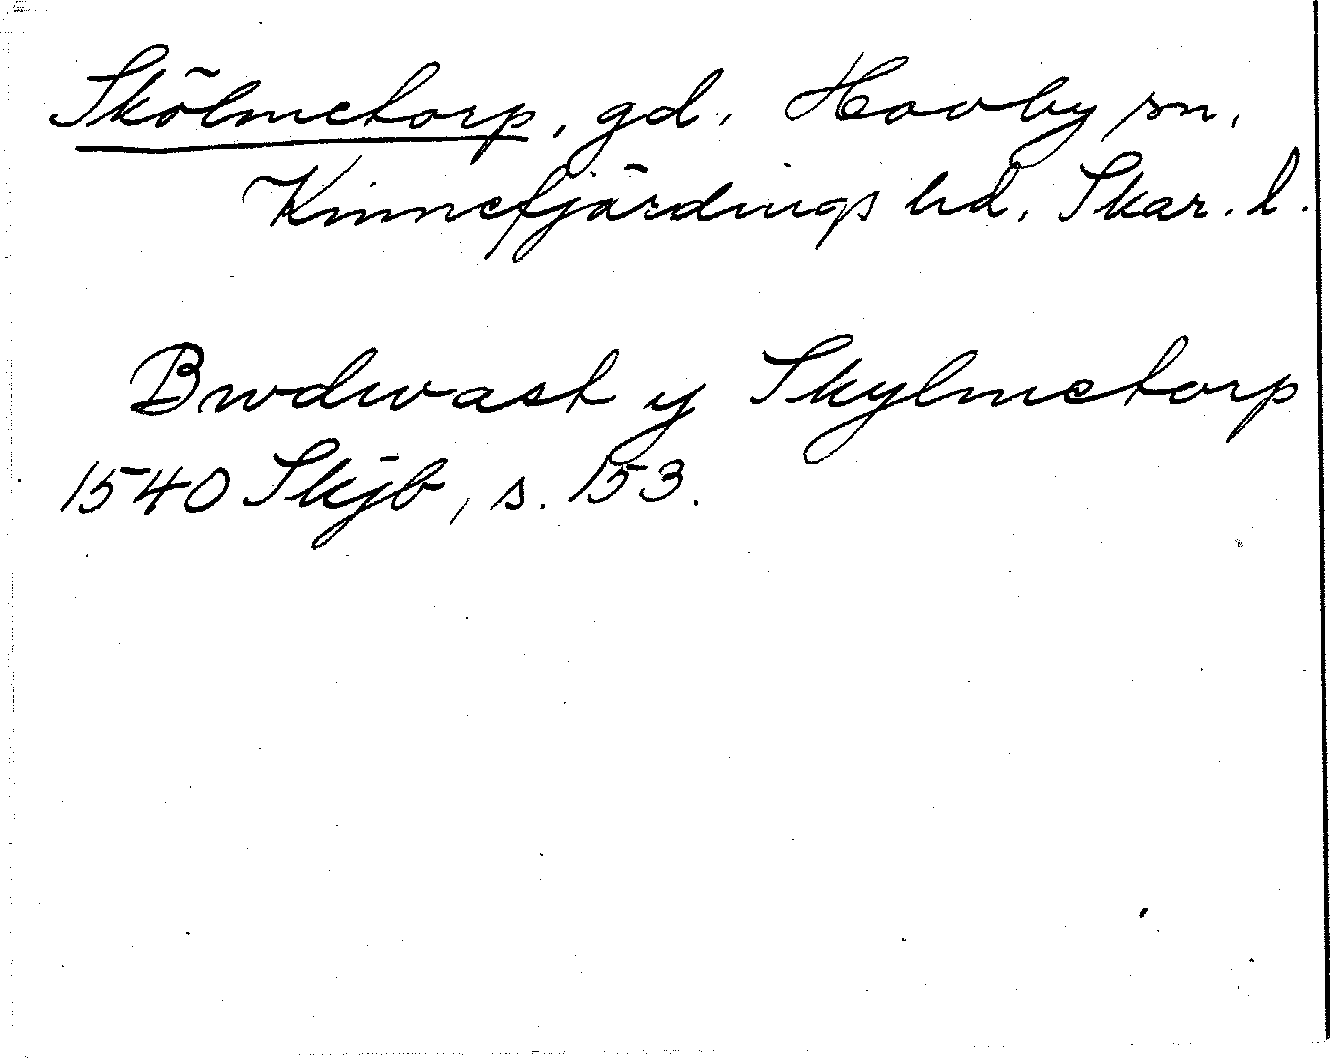 Skölmetorp, gd, Hovby sn,
Kinnefjärdings hd, Skar. l.
Brodwast y Skylmetorp
1540 Skjb, s. 153.